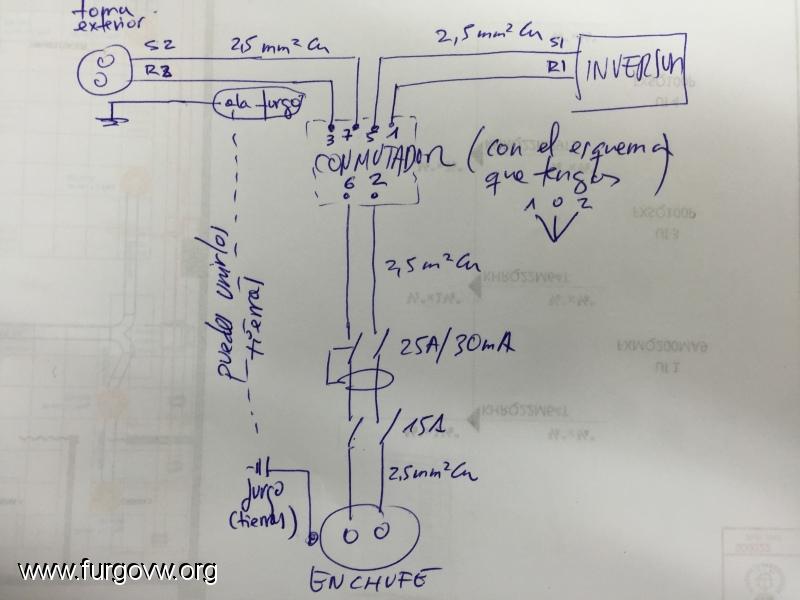 toma
exterior
S2
2,5 mm² Cu
2,5 mm² Cu
S1
R1
INVERSOR
a la furgo
3 7 5 1
CONMUTADOR
(con el esquema
que tengas)
6 2
1 0 2
2,5 m² Cu
puedes unirlos
tierras
25A/30mA
15A
2,5 mm² Cu
furgo
(tierra)
ENCHUFE
KHRQ22M64T
FXSQ100P
KHRQ22M64T
FXMQ200MA9
www.furgovw.org